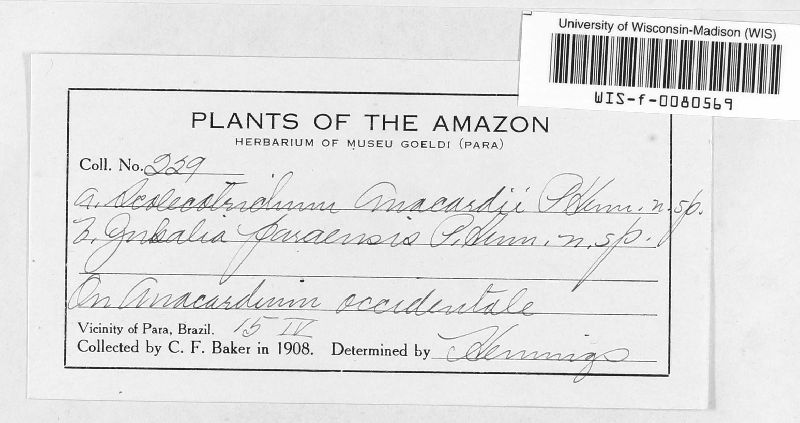 University of Wisconsin-Madison (WIS)
WIS-f-0080569
PLANTS OF THE AMAZON
HERBARIUM OF MUSEU GOELDI (PARA)
Coll. No. 229
a. Scolecotrichum Anacardii P. Henn. n. sp.
b. paraensis P. Henn. n. sp.
On Anacardium occidentale
Vicinity of Para, Brazil. 15 IV
Collected by C. F. Baker in 1908. Determined by Hennings